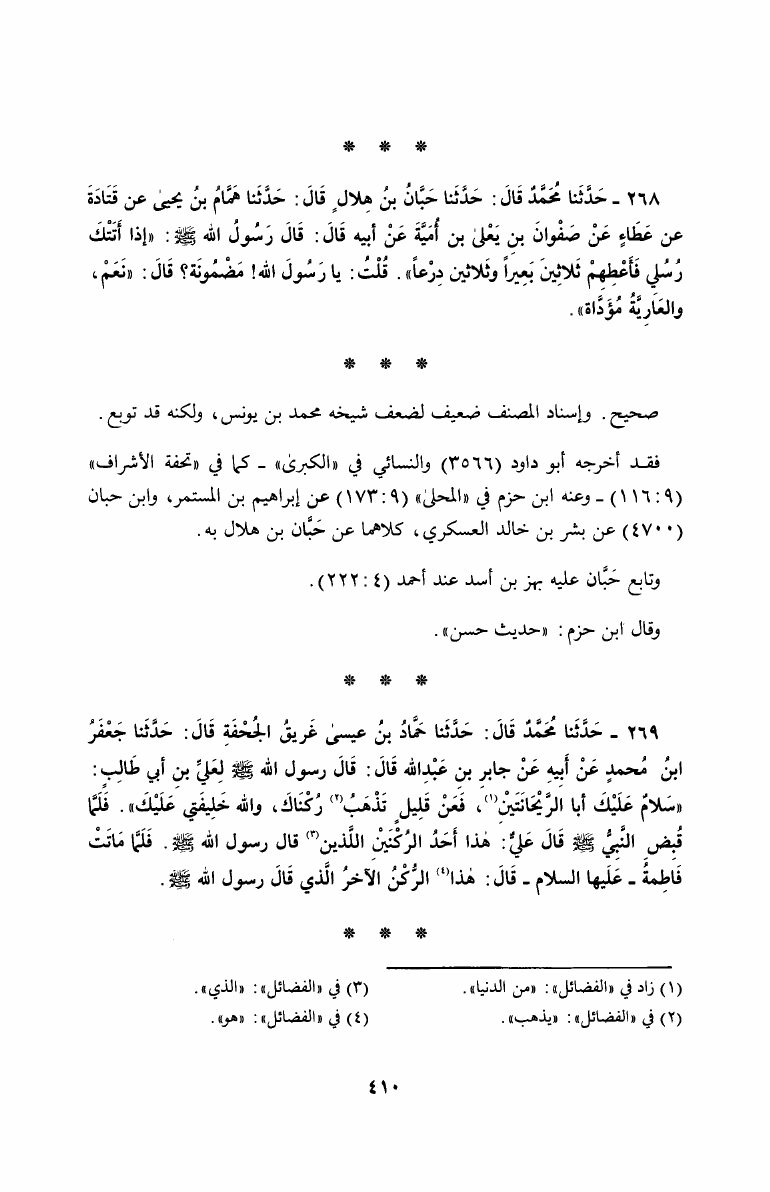 * * *
٢٦٨ ـ حَدَّثَنا مُحَمَّدٌ قَالَ: حَدَّثَنا حَبَّانُ بنُ هِلالٍ قَالَ: حَدَّثَنا هَمَّامُ بنُ يحيىٰ عن قَتَادَةَ
عن عَطَاءٍ عَنْ صَفْوانَ بنِ يَعْلىٰ بن أُمَيَّةَ عَنْ أبيه قَالَ: قَالَ رَسُولُ الله ﷺ: «إذا أَتَتْكَ
رُسُلي فَأَعْطِهِمْ ثَلاثِينَ بَعِيراً وثَلاثين دِرْعاً». قُلْتُ: يا رَسُولَ الله! مَضْمُونَة؟ قَالَ: «نَعَمْ،
والعَارِيَّةُ مُؤَدَّاة».
* * *
صحيح. وإسناد المصنف ضعيف لضعف شيخه محمد بن يونس، ولكنه قد توبع.
فقد أخرجه أبو داود (٣٥٦٦) والنسائي في «الكبرىٰ» ـ كما في «تحفة الأشراف»
(٩: ١١٦) ـ وعنه ابن حزم في «المحلىٰ» (٩: ١٧٣) عن إبراهيم بن المستمر، وابن حبان
(٤٧٠٠) عن بشر بن خالد العسكري، كلاهما عن حَبَّان بن هلال به.
وتابع حَبَّان عليه بهز بن أسد عند أحمد (٤: ٢٢٢).
وقال ابن حزم: «حديث حسن».
* * *
٢٦٩ ـ حَدَّثَنا مُحَمَّدٌ قَالَ: حَدَّثَنا حَمَّادُ بنُ عيسىٰ غَريقُ الجُحْفَةِ قَالَ: حَدَّثَنا جَعْفَرُ
ابنُ مُحمدٍ عَنْ أَبيهِ عَنْ جابرِ بنِ عَبْدِالله قَالَ: قَالَ رسول الله ﷺ لعَليِّ بنِ أبي طَالبٍ:
«سَلامٌ عَلَيْكَ أبا الرَّيْحَانَتَيْنِ(١)، فَعَنْ قَليلٍ تَذْهَبُ(٢) رُكْنَاكَ، والله خَليفَتي عَلَيْكَ». فَلَمَّا
قُبِضَ النَّبيُّ ﷺ قَالَ عَليٌّ: هٰذا أَحَدُ الرُكْنَيْنِ اللَّذين(٣) قال رسول الله ﷺ. فَلَمَّا مَاتَتْ
فَاطِمةُ ـ عَلَيها السلام ـ قَالَ: هٰذا(٤) الرُّكْنُ الآخرُ الَّذي قَالَ رسول الله ﷺ.
* * *
(١) زاد في «الفضائل»: «من الدنيا».
(٢) في «الفضائل»: «يذهب».
(٣) في «الفضائل»: «الذي».
(٤) في «الفضائل»: «هو».
٤١٠